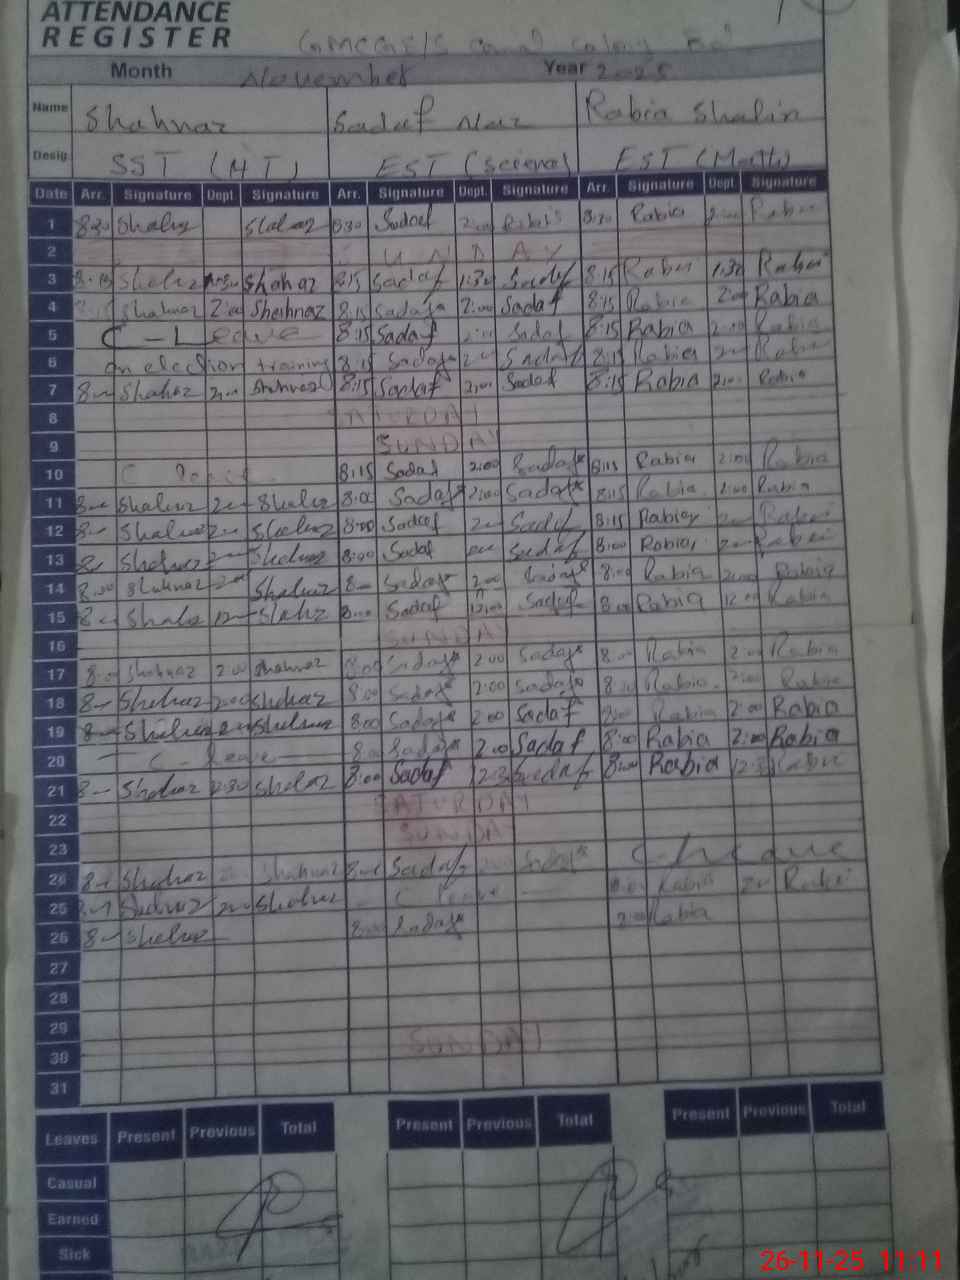 ATTENDANCE
REGISTER
Month November Year 2025
Name Shahnaz Sadaf Naz Rabia Shalin
Desig. SST (HT) EST (Science) EST (Math)
Date Arr. Signature Dept. Signature Arr. Signature Dept. Signature Arr. Signature Dept. Signature
1 8:30 Shahnz 8:30 Sadaf 2:00 8:30 Rabia 2:00 Rabia
2 SUNDAY
3 8:15 Shahnaz 8:15 Sadaf 1:30 Sadaf 8:15 Rabia 1:30 Rabia
4 8:15 Shahnaz 2:00 Shahnaz 8:15 Sadaf 2:00 Sadaf 8:15 Rabia 2:00 Rabia
5 C - Leave 8:15 Sadaf 2:00 Sadaf 8:15 Rabia 2:00 Rabia
6 on election training 8:15 Sadaf 2:00 Sadaf 8:15 Rabia 2:00 Rabia
7 8:00 Shahnaz 2:00 Shahnaz 8:15 Sadaf 2:00 Sadaf 8:15 Rabia 2:00 Rabia
8 SATURDAY
9 SUNDAY
10 8:15 Sadaf 2:00 Sadaf 8:15 Rabia 2:00 Rabia
11 8:00 Shahnz 2:00 Shahnz 8:00 Sadaf 2:00 Sadaf 8:15 Rabia 2:00 Rabia
12 8:00 Shahnz 2:00 Shahnz 8:00 Sadaf 2:00 Sadaf 8:15 Rabia 2:00 Rabia
13 8:00 Shahnz 2:00 Shahnz 8:00 Sadaf 2:00 Sadaf 8:00 Rabia 2:00 Rabia
14 8:00 Shahnaz 2:00 Shahnaz 8:00 Sadaf 2:00 Sadaf 8:00 Rabia 2:00 Rabia
15 8:00 Shahz 12:00 Shahz 8:00 Sadaf 12:00 Sadaf 8:00 Rabia 12:00 Rabia
16 SUNDAY
17 8:00 Shahnaz 2:00 Shahnaz 8:00 Sadaf 2:00 Sadaf 8:00 Rabia 2:00 Rabia
18 8:00 Shahnaz 2:00 Shahnaz 8:00 Sadaf 2:00 Sadaf 8:00 Rabia 2:00 Rabia
19 8:00 Shahnaz 2:00 Shahnaz 8:00 Sadaf 2:00 Sadaf 8:00 Rabia 2:00 Rabia
20 C - leave 8:00 Sadaf 2:00 Sadaf 8:00 Rabia 2:00 Rabia
21 8:00 Shahnaz 12:30 Shahnaz 8:00 Sadaf 12:30 Sadaf 8:00 Rabia 12:30 Rabia
22 SATURDAY
23 SUNDAY
24 8:00 Shahnaz Shahnaz 8:00 Sadaf 2:00 Sadaf C - leave
25 8:00 Shahnaz 2:00 Shahnaz C leave 8:00 Rabia 2:00 Rabia
26 8:00 Shahnaz 8:00 Sadaf 8:00 Rabia
27
28
29
30 SUNDAY
31
Leaves Present Previous Total Present Previous Total Present Previous Total
Casual
Earned
Sick
26-11-25 11:11